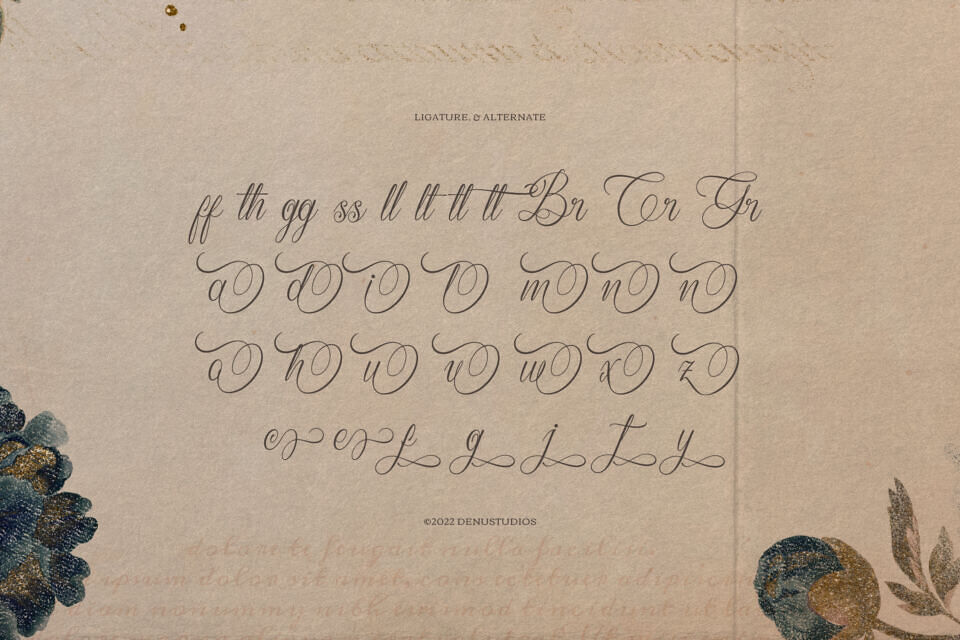 LIGATURE. & ALTERNATE
ff th gg ss ll lt tl tt Br Cr Gr
a d i l m n n
a h u v w x z
g j t y
©2022 DENUSTUDIOS
dolore te feugait nulla facilisi.
ipsum dolor sit amet, consectetuer adipiscing
diam nonummy nibh euismod tincidunt ut